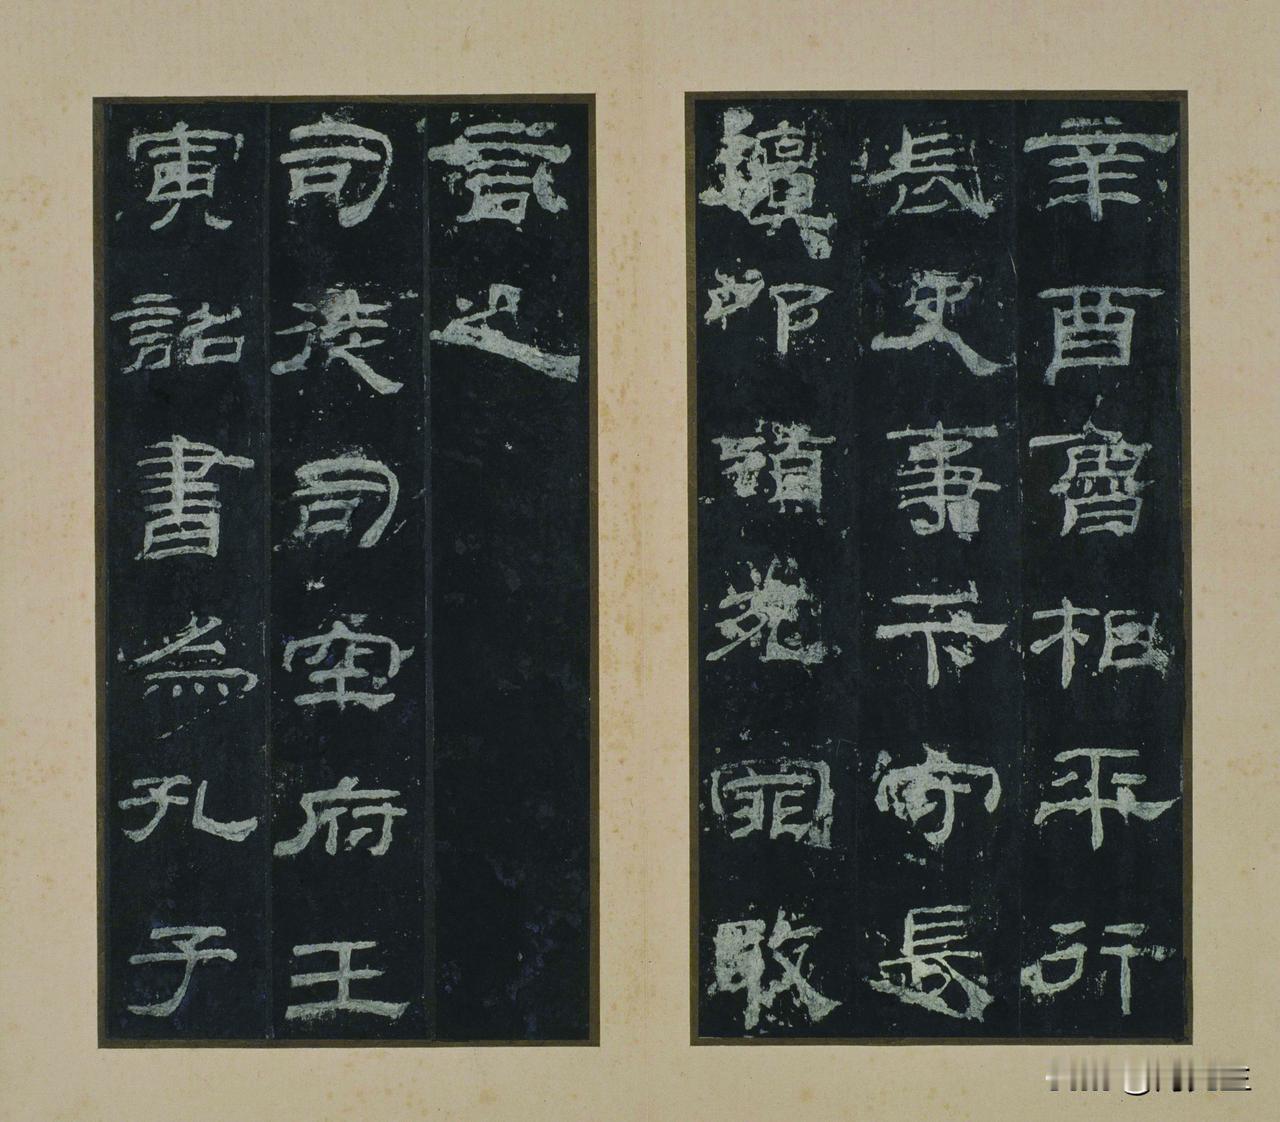 辛酉魯相平行
長史事卞守長
擅叩頭死罪敢
言之
司徒司空府壬
寅詔書為孔子